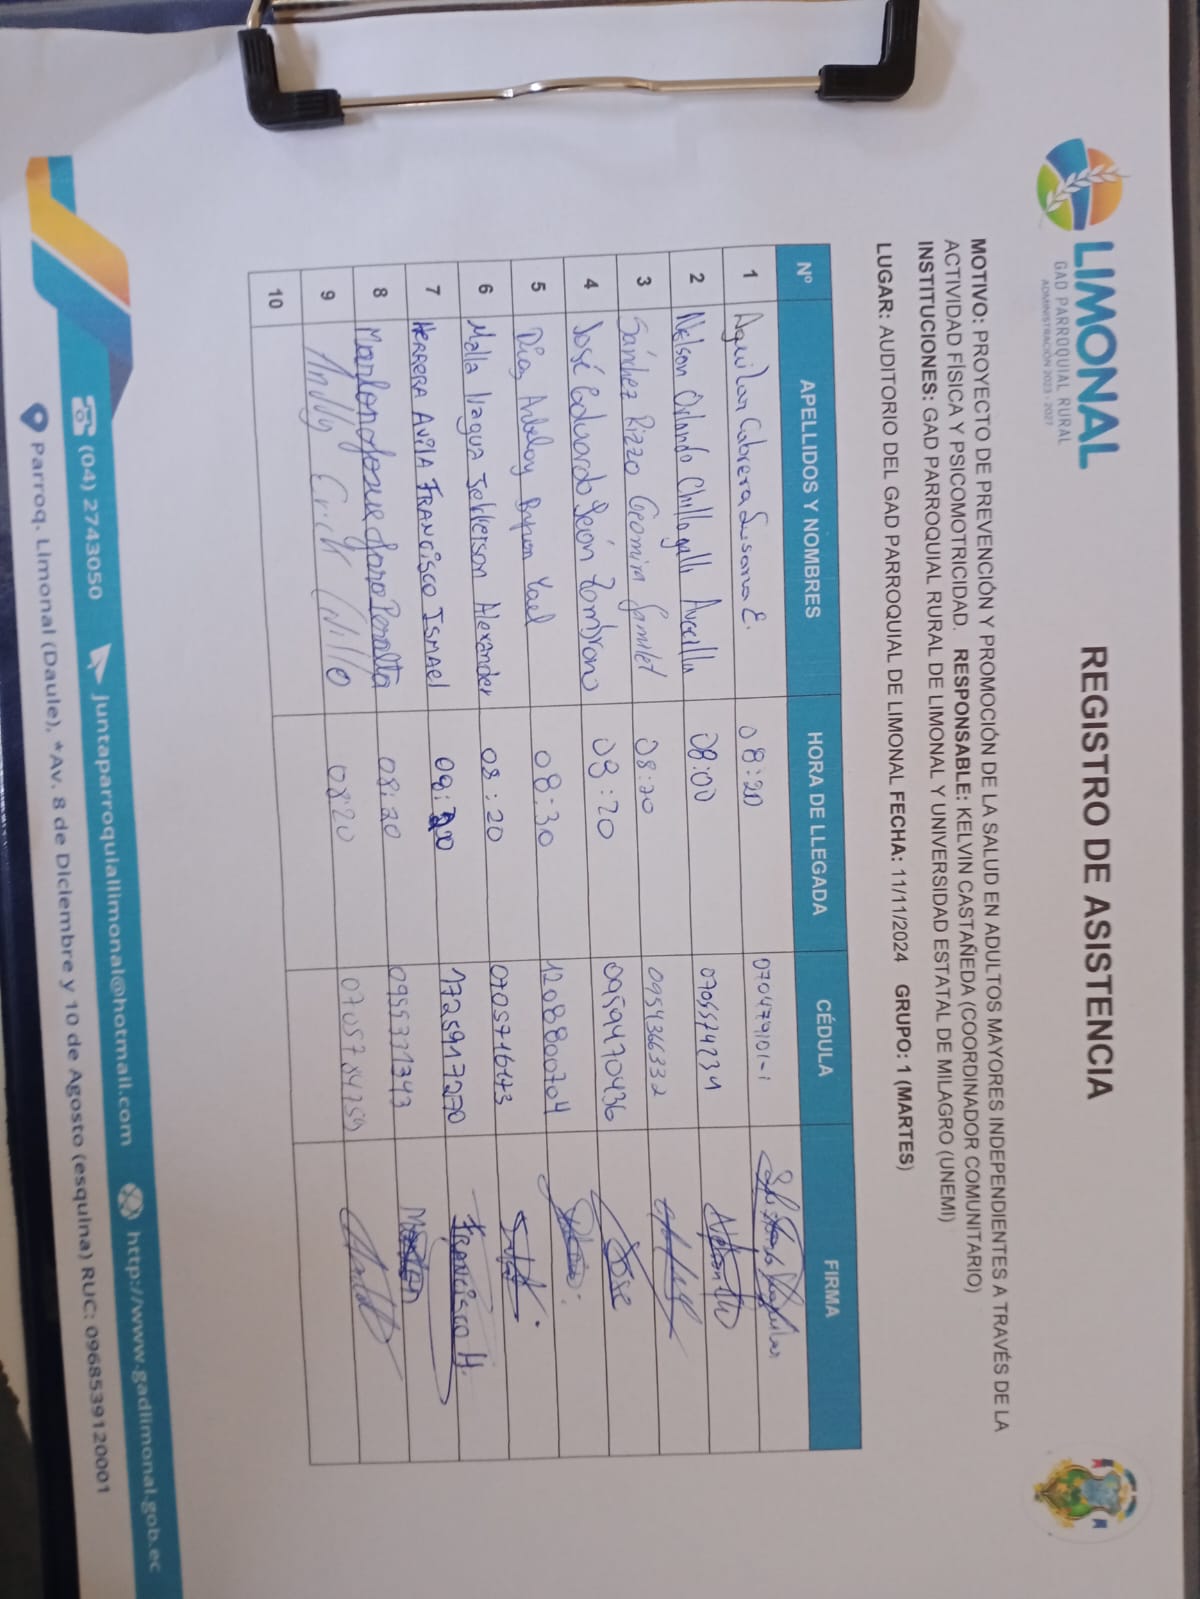 LIMONAL
GAD PARROQUIAL RURAL
ADMINISTRACIÓN 2023 - 2027
REGISTRO DE ASISTENCIA
MOTIVO: PROYECTO DE PREVENCIÓN Y PROMOCIÓN DE LA SALUD EN ADULTOS MAYORES INDEPENDIENTES A TRAVÉS DE LA
ACTIVIDAD FÍSICA Y PSICOMOTRICIDAD. RESPONSABLE: KELVIN CASTAÑEDA (COORDINADOR COMUNITARIO)
INSTITUCIONES: GAD PARROQUIAL RURAL DE LIMONAL Y UNIVERSIDAD ESTATAL DE MILAGRO (UNEMI)
LUGAR: AUDITORIO DEL GAD PARROQUIAL DE LIMONAL FECHA: 11/11/2024 GRUPO: 1 (MARTES)
Nº APELLIDOS Y NOMBRES HORA DE LLEGADA CÉDULA FIRMA
1 Aguilar Cabrera Susana E. 08:20 070479101-1
2 Nelson Orlando Chillogalli 08:00
3 Sánchez Rizzo Geomira 08:20 0954366332
4 José Eduardo León Zambrano 08:20 0959470436 Jose
5 Diaz Byron Yael 08:30 1208800704
6 Malla Jefferson Alexander 08:20
7 HERRERA AVILA FRANCISCO ISMAEL 1725917270 FRANCISCO H.
8 Marlon Josue Peralta 08:20
9 Erick 08:20
10
(04) 2743050 juntaparroquiallimonal@hotmail.com http://www.gadlimonal.gob.ec
Parroq. Limonal (Daule), *Av. 8 de Diciembre y 10 de Agosto (esquina) RUC: 0968539120001